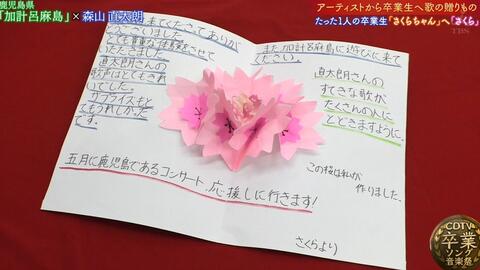 鹿児島県
「加計呂麻島」×森山 直太朗
アーティストから卒業生へ歌の贈りもの
たった1人の卒業生「さくらちゃん」へ「さくら」
TBS
来てくださってありが
いただきました。
直太朗さんの
歌声はとてもきれ
いでした。
サプライズもと
てもうれしかった
です。
また加計呂麻島に遊びに来て
ください。
直太朗さんの
すてきな歌が
たくさんの人に
とどきますように。
この桜は私が
作りました。
五月に鹿児島であるコンサート、応援しに行きます!
さくらより
CDTV
卒業
ソング
音楽祭